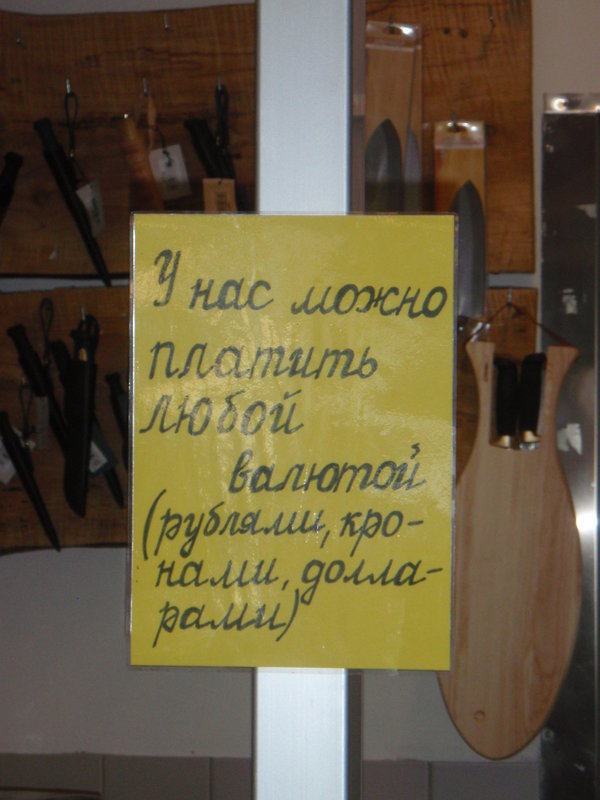 У нас можно
платить
любой
валютой
(рублями, кро-
нами, долла-
рами)